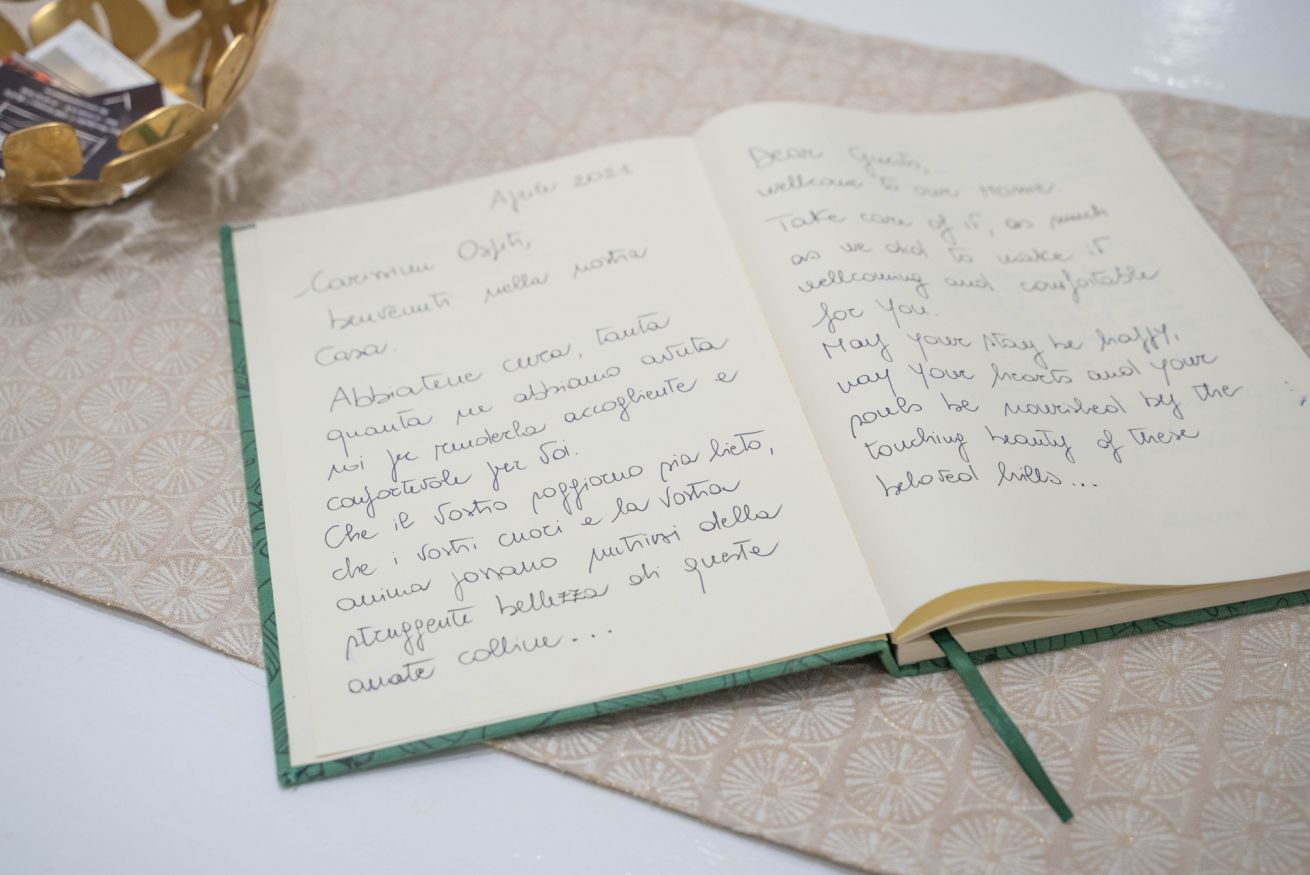 Aprile 2021
Carissimi Ospiti,
benvenuti nella nostra
Casa.
Abbiatene cura, tanta
quanta ne abbiamo avuta
noi per renderla accogliente e
confortevole per Voi.
Che il Vostro soggiorno sia lieto,
che i Vostri cuori e la Vostra
anima possano nutrirsi della
struggente bellezza di queste
amate colline...
Dear Guests,
wellcome to our HOMME.
Take care of it, as much
as we did to make it
wellcoming and comfortable
for You.
May your stay be happy,
may your hearts and your
souls be nourished by the
touching beauty of these
beloved hills...